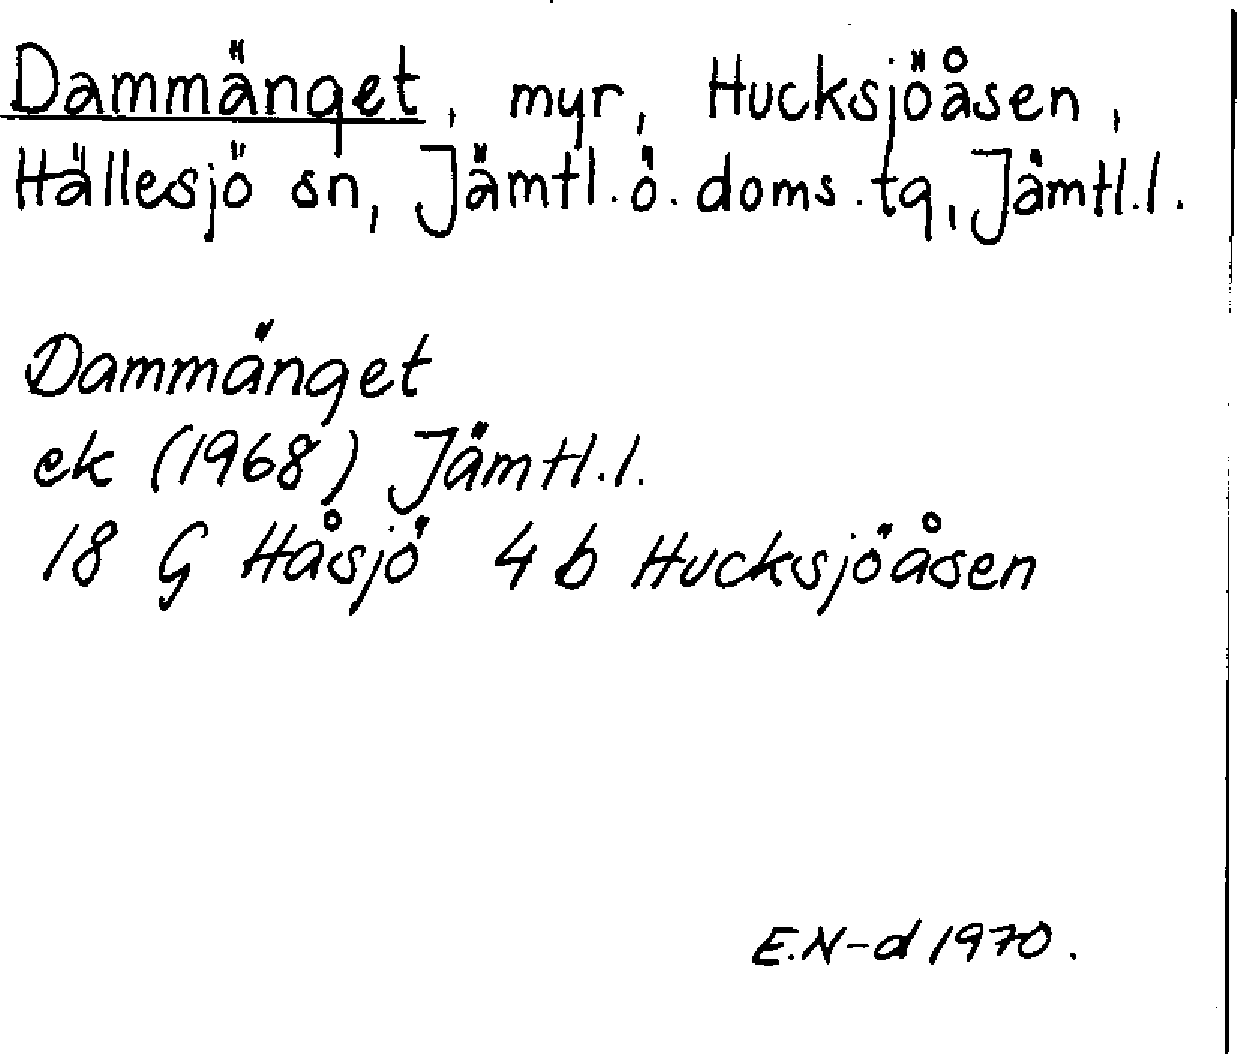 Dammänget, myr, Hucksjöåsen,
Hällesjö sn, Jämtl. ö. doms. tg, Jämtl. l.
Dammänget
ek (1968) Jämtl. l.
18 G Håsjö 4 b Hucksjöåsen
E.N-d 1970.